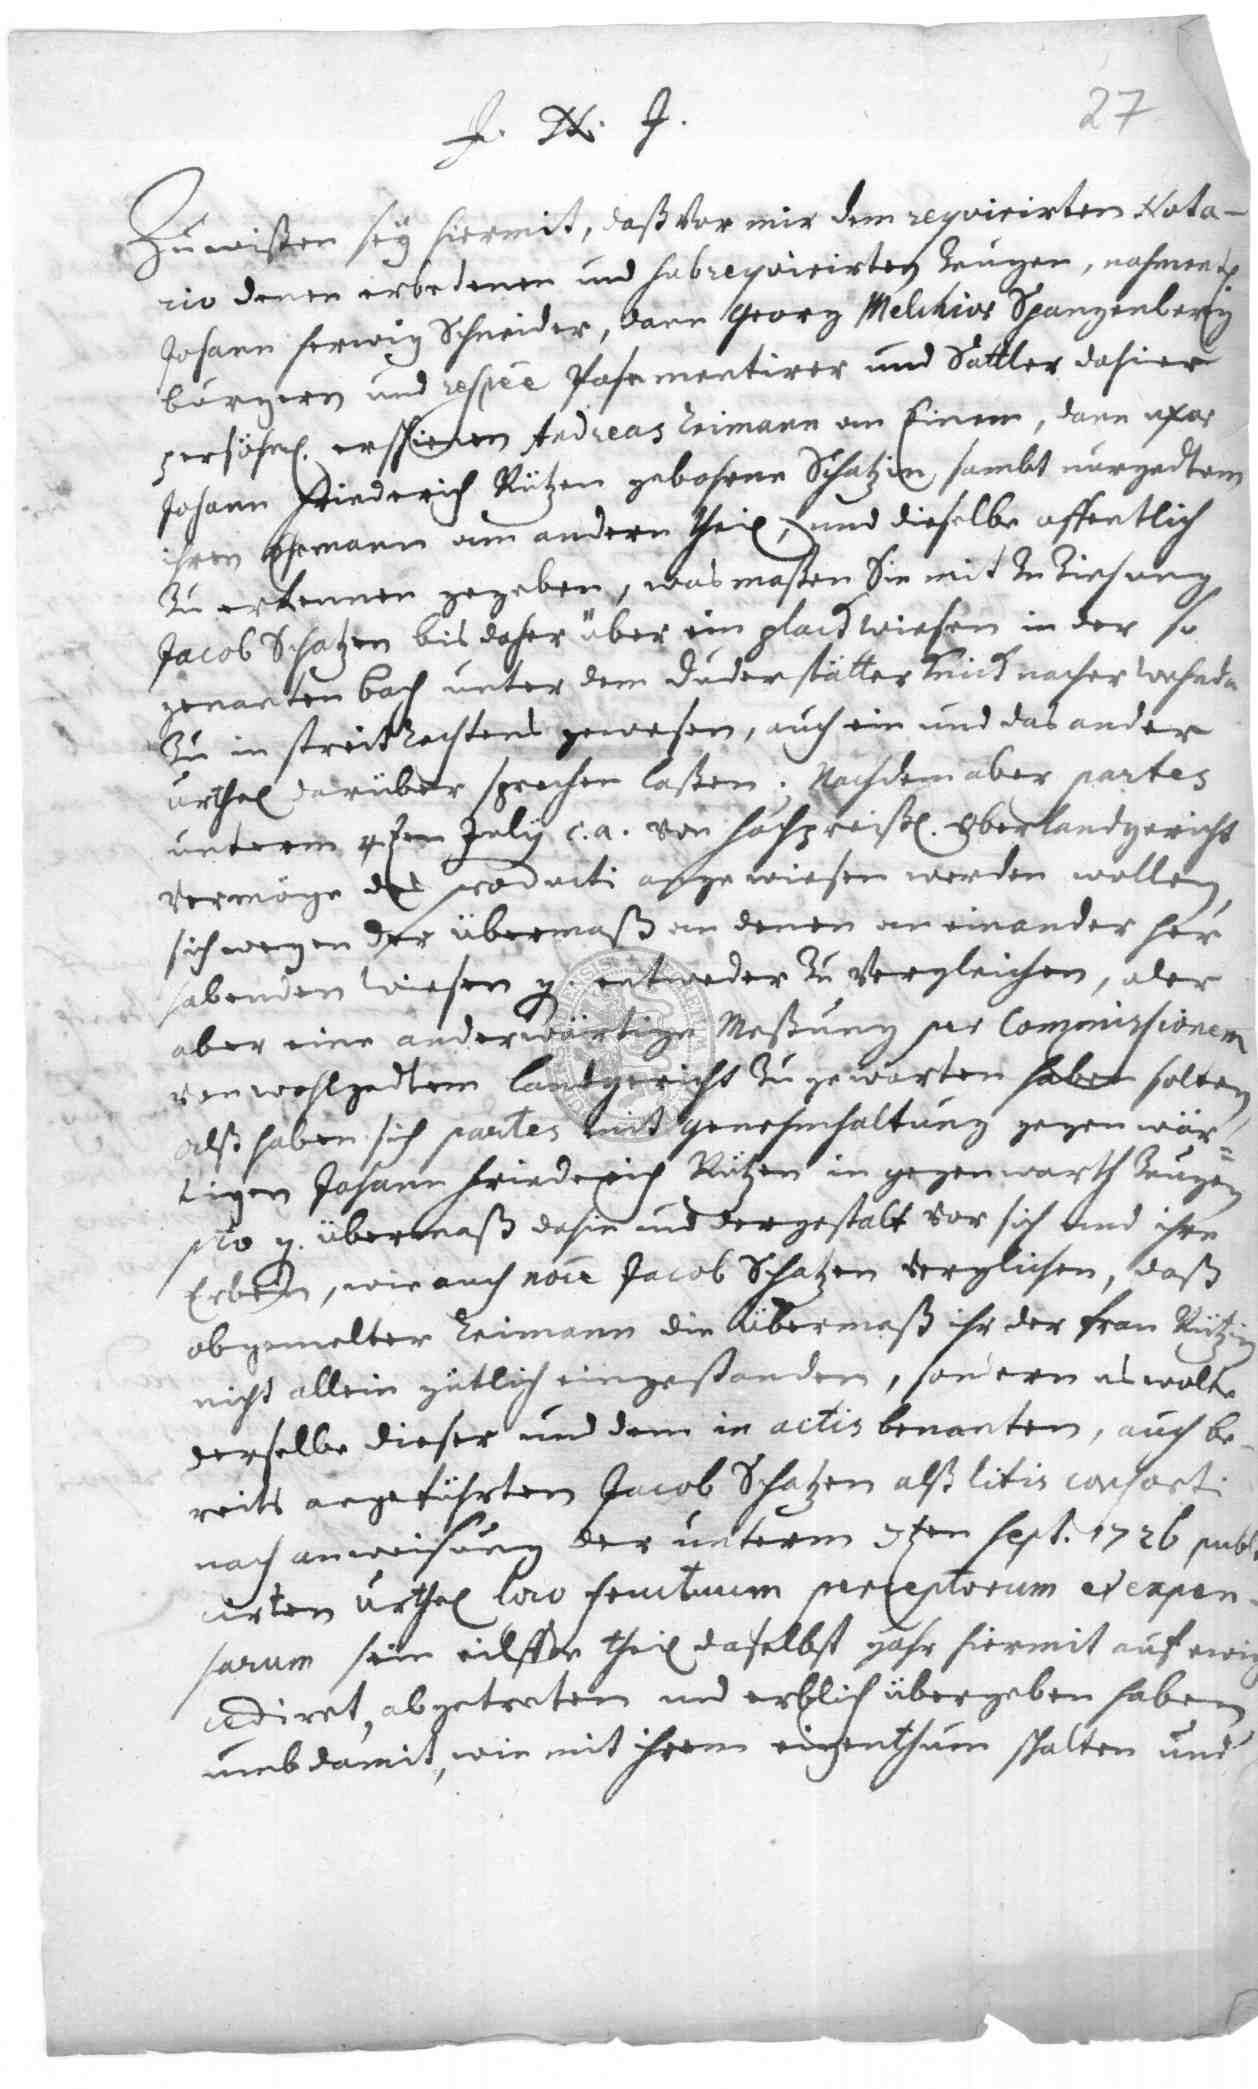 27
J. N. J.
Zu wißen sey hiermit, daß vor mir dem reqvirirten Nota-
rio denen erbetenen und hab reqvirirten Zeugen, nahmentl.
Johann Herwig Schneider, dann Georg Melchior Spangenberg
bürgern und respée Posamentirer und Sattler dahier
persöhnl. erschienen Andreas Leimann an Einem, dann uxor
Johann Friederich Rützen gebohrne Schatzin, sambt vorgedtem
ihren Ehemann am andern theil, und dieselbe offentlich
zu erkennen gegeben, was maßen Sie mit Zuziehung
Jacob Schatzen bis daher über ein placd wiesen in der so
genanten bach unter dem Duderstätter Knick nacher
zu in streit Rechtens gewesen, auch ein und das ander
urthel darüber sprechen laßen; Nachdem aber partes
unterm 4ten July c. a. von hochpreißl. Oberlandgericht
vermöge des producti angewiesen werden wollen,
sich wegen der übermaß an denen an einander her
habenden Wiesen g. entweder zu vergleichen, oder
aber eine anderwärtige Meßung per Commissionem
von wohlgedtem Landgericht zu gewarten haben solten,
alß haben sich partes mit genehmhaltung gegenwär=
tigen Johann Friederich Rützen in gegenwarth Zeugen
pto g. übermaß dahin und dergestalt vor sich und ihre
Erben, wie auch noïe Jacob Schatzen verglichen, daß
obgemelter Leimann die übermaß ihr der frau Rützin
nicht allein gütlich eingestanden, sondern es wolte
derselbe dieser und dem in actis benanten, auch be-
reits angeführten Jacob Schatzen alß litis consorti
nach anweisung der unterm 3ten Sept. 1726 publi
cirten urthel loco fructuum perceptorum et expen-
sarum sein eilffte theil daselbst hiermit auf ewig
cediret, abgetreten und erblich übergeben haben
umb damit, wie mit ihrem eigenthum schalten und